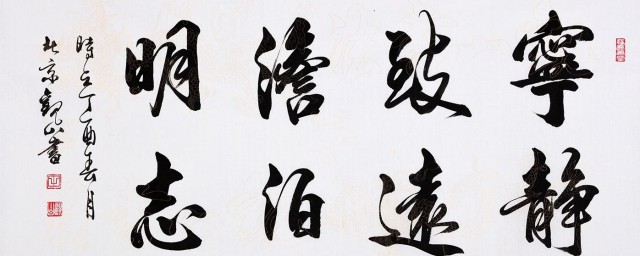 寧靜
致遠
澹泊
明志
時在丁酉春月
於京觀山書